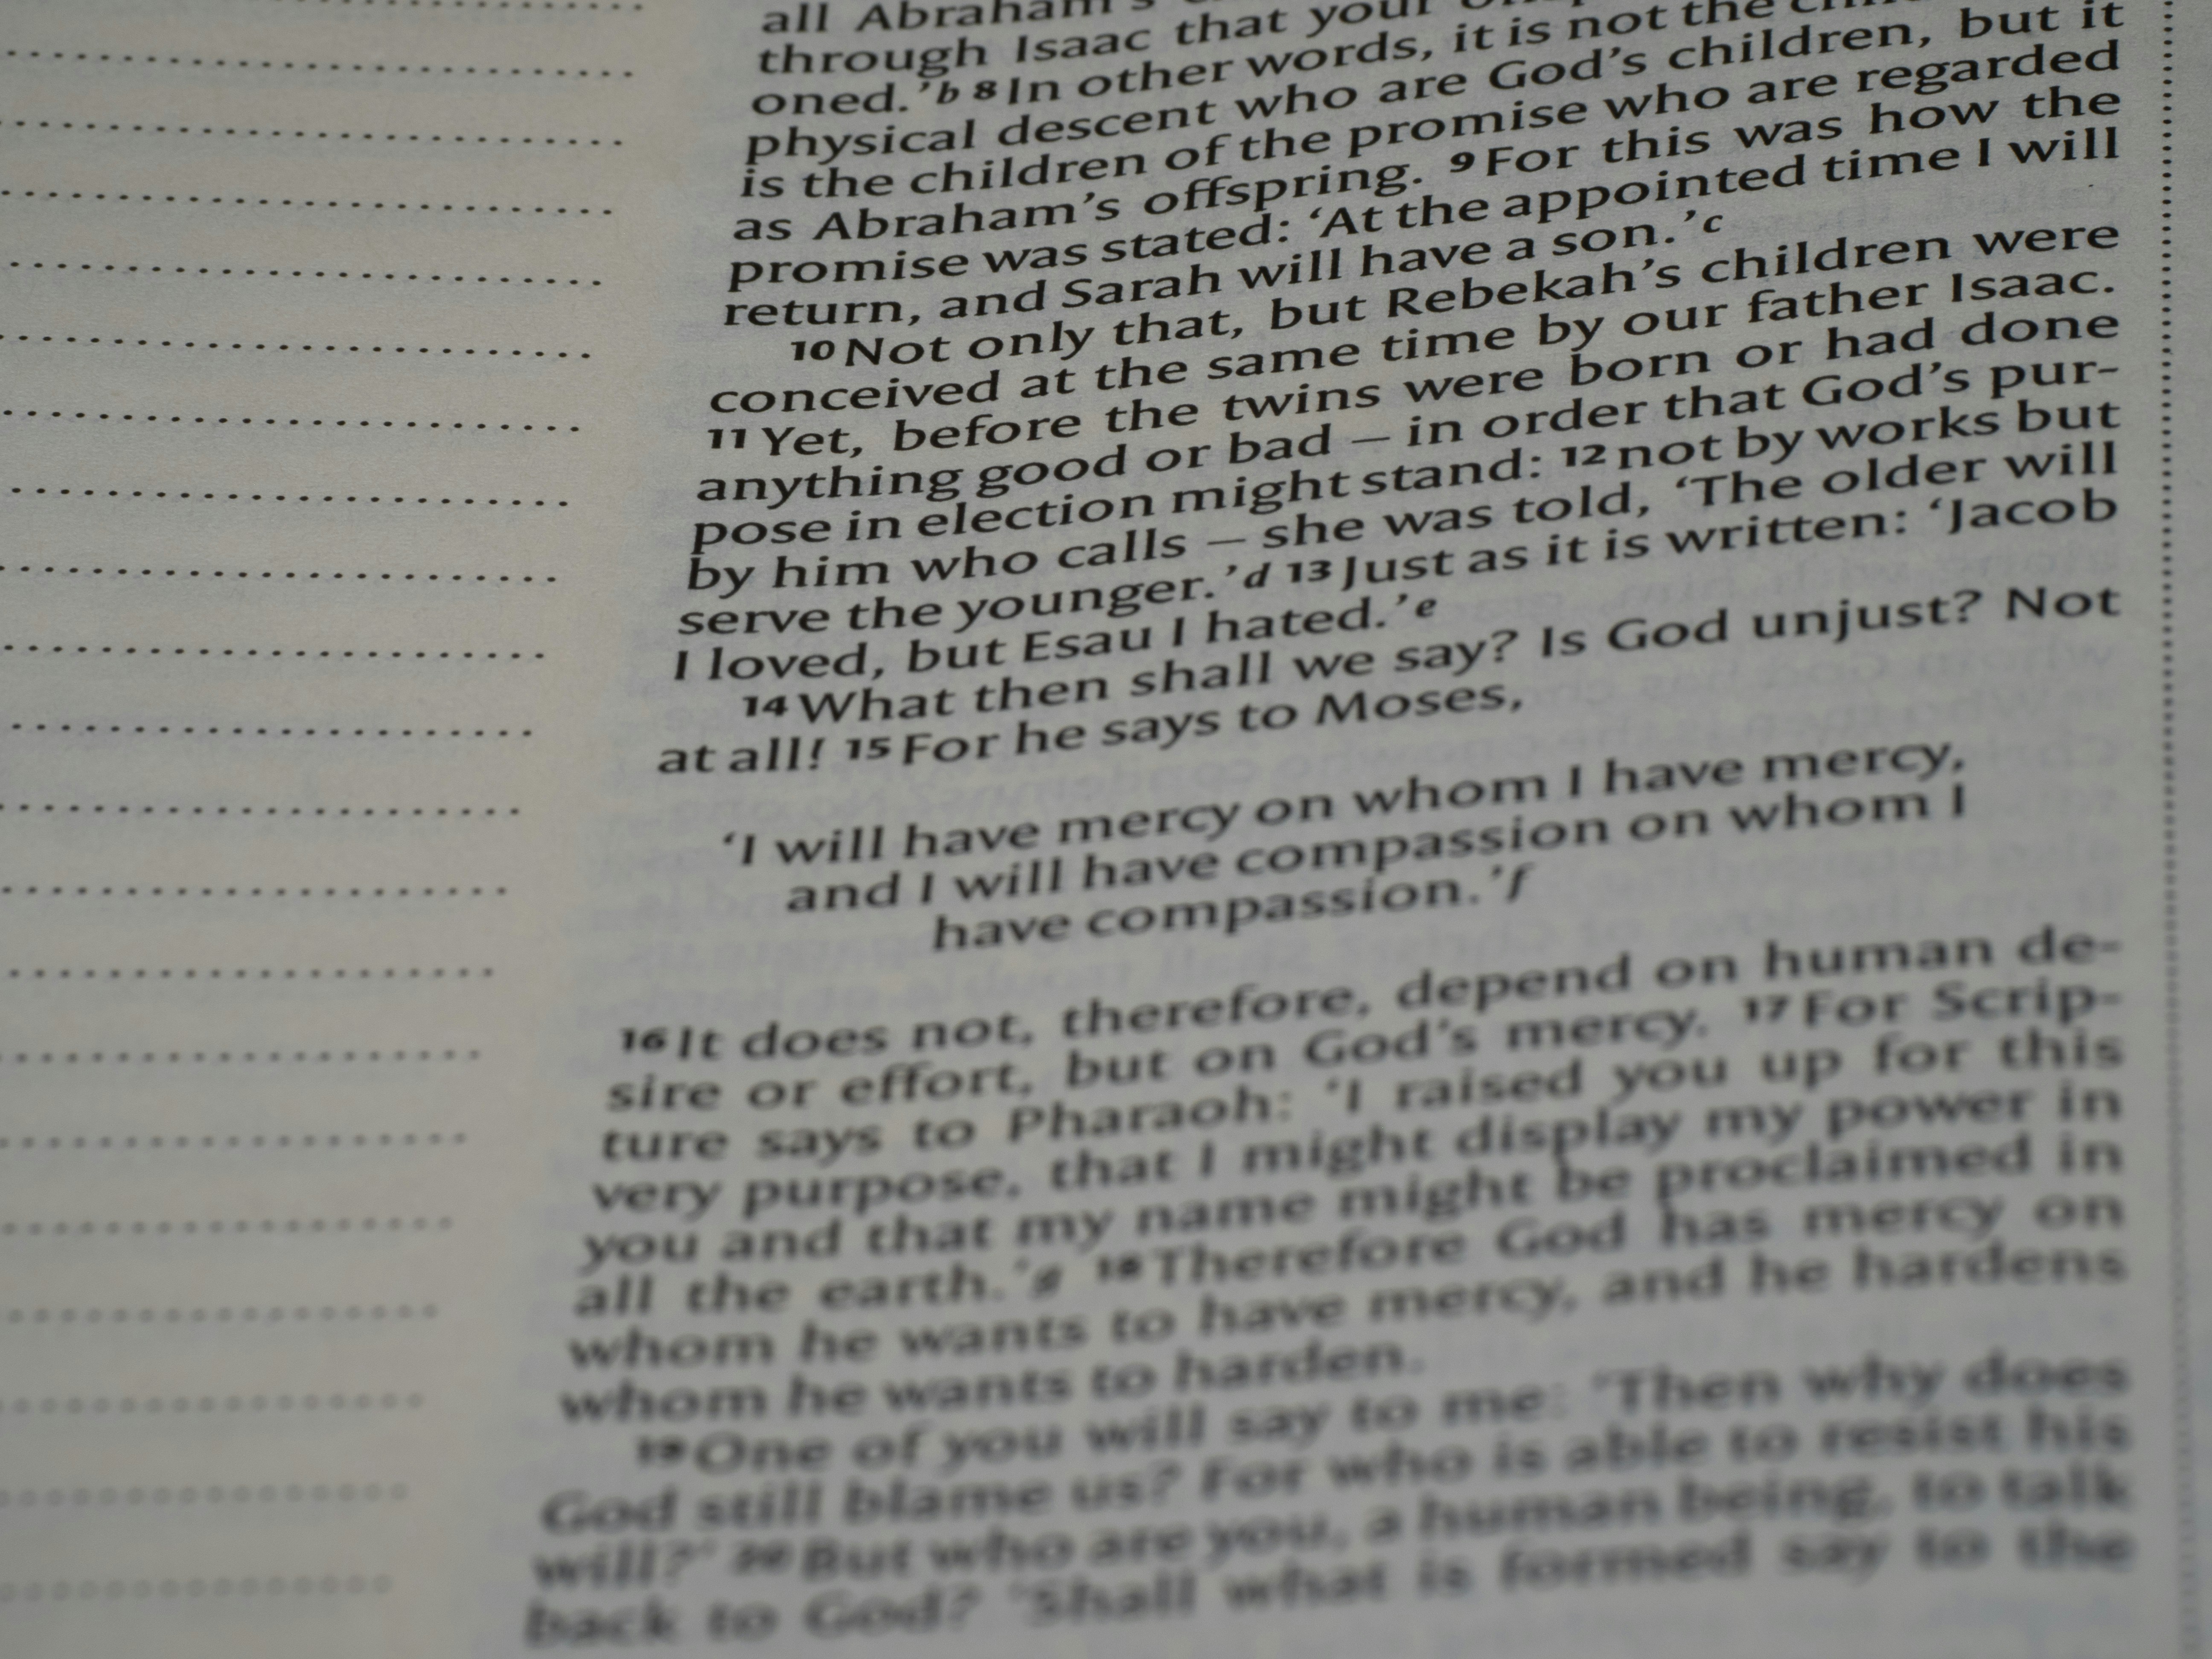 all Abraham's
through Isaac that your
oned.'b 8 In other words, it is not the
physical descent who are God's children, but it
is the children of the promise who are regarded
as Abraham's offspring. 9 For this was how the
promise was stated: 'At the appointed time I will
return, and Sarah will have a son.'c
10 Not only that, but Rebekah's children were
conceived at the same time by our father Isaac.
11 Yet, before the twins were born or had done
anything good or bad – in order that God's pur-
pose in election might stand: 12 not by works but
by him who calls – she was told, 'The older will
serve the younger.'d 13 Just as it is written: 'Jacob
I loved, but Esau I hated.'e
14 What then shall we say? Is God unjust? Not
at all! 15 For he says to Moses,
'I will have mercy on whom I have mercy,
and I will have compassion on whom I
have compassion.'f
16 It does not, therefore, depend on human de-
sire or effort, but on God's mercy. 17 For Scrip-
ture says to Pharaoh: 'I raised you up for this
very purpose, that I might display my power in
you and that my name might be proclaimed in
all the earth.'g 18 Therefore God has mercy on
whom he wants to have mercy, and he hardens
whom he wants to harden.
19 One of you will say to me: 'Then why does
God still blame us? For who is able to resist his
will?' 20 But who are you, a human being, to talk
back to God? 'Shall what is formed say to the